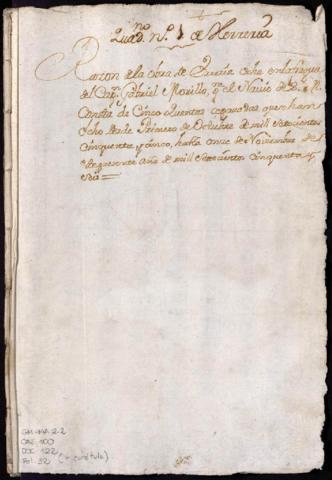 Quad.no N.o 1 de Herreria
Razon de la obra de Herreria echa en la fragua
del Cap.n Gabriel Morillo, p.a el Navio de S. M.
Consta de Cinco Quentas separadas, que se han
echo desde Primero de Octubre de mill setecientos
cinquenta y cinco, hasta onze de Noviembre de
el presente año de mill setecientos cinquenta y
seis =
GM-MA 2-2
CAJ. 100
DOC. 122
Fol. 32 (+ carátula)